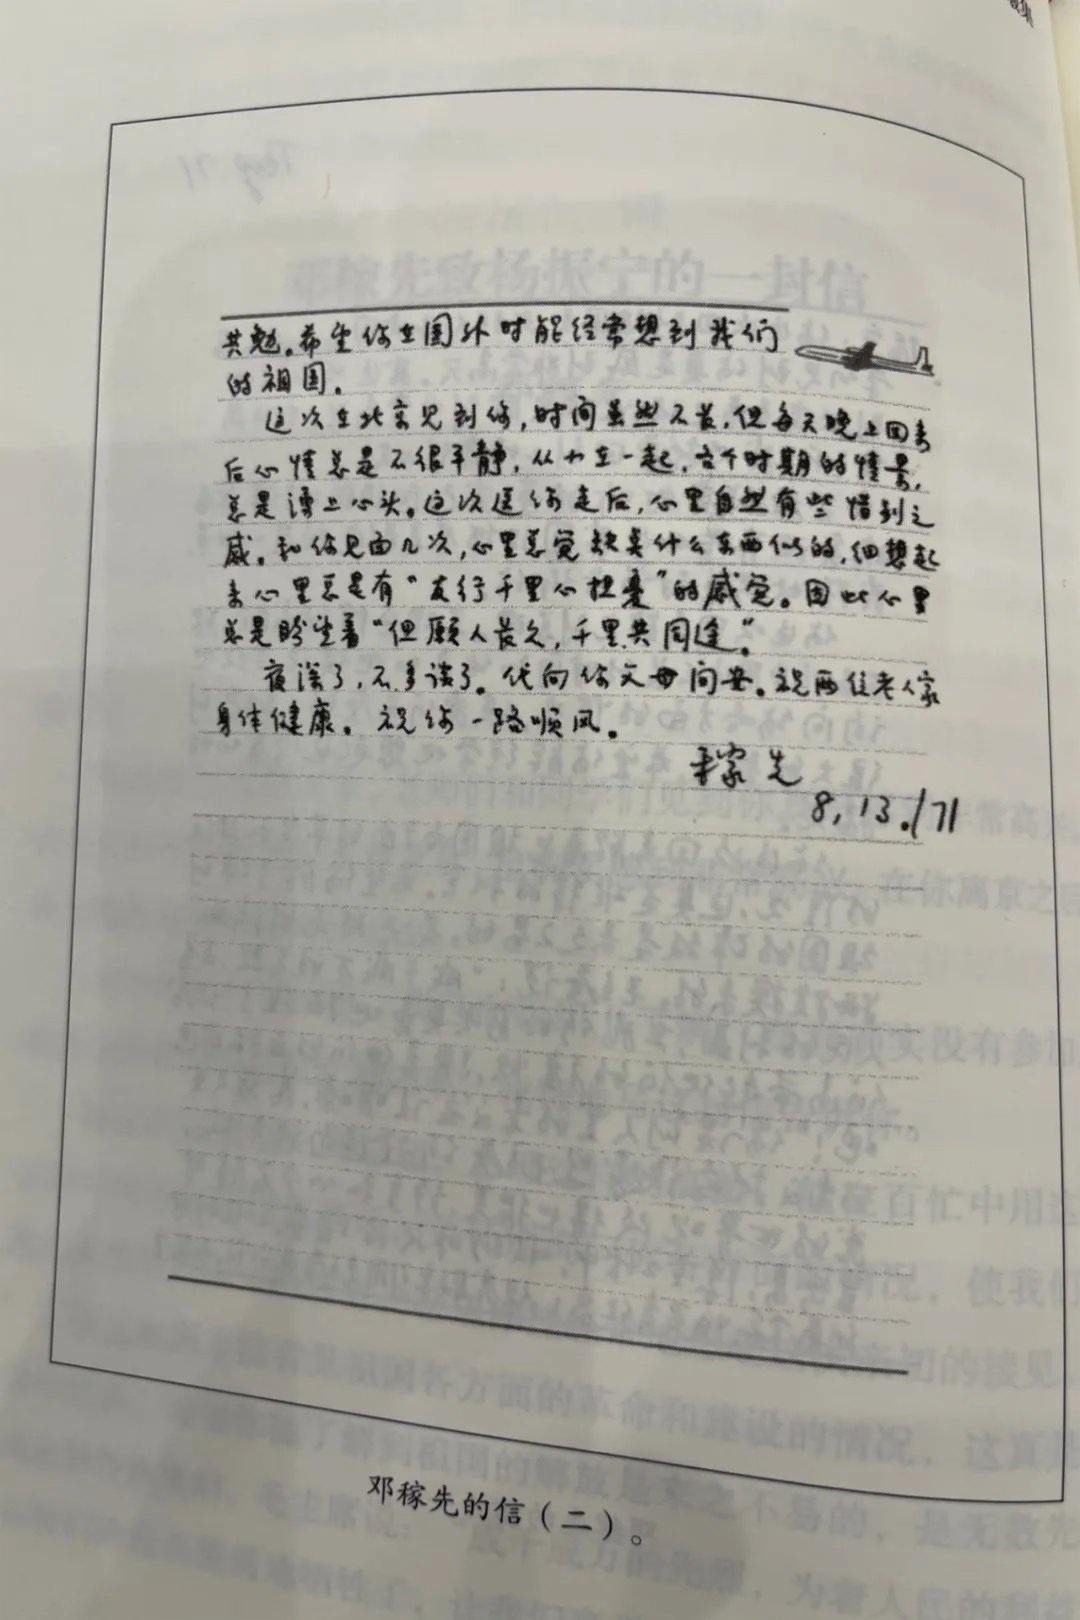 共勉。希望你在国外时能经常想到我们
的祖国。
这次在北京见到你,时间虽然不长,但每天晚上回来
后心情总是不很平静,从小在一起,各个时期的情景,
总是涌上心头。这次送你走后,心里自然有些惜别之
感。和你见面几次,心里总觉缺真什么东西似的,细想起
来心里总是有“友行千里心担忧”的感觉。因此心里
总是盼望着“但愿人长久,千里共同途”。
夜深了,不多谈了。代向你父母问安。祝两位老人家
身体健康。祝你一路顺风。
稼先
8,13./71
邓稼先的信(二)。